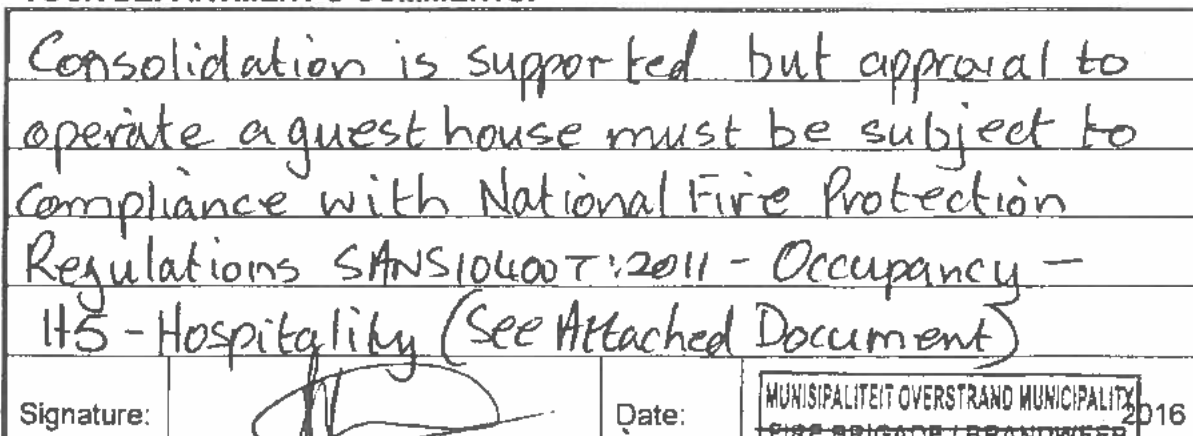 Consolidation is supported but approval to
operate a guest house must be subject to
compliance with National Fire Protection
Regulations SANS10400T:2011 - Occupancy -
H5 - Hospitality (See Attached Document)
Signature: Date: MUNISIPALITEIT OVERSTRAND MUNICIPALITY 2016
FIRE BRIGADE / BRANDWEER